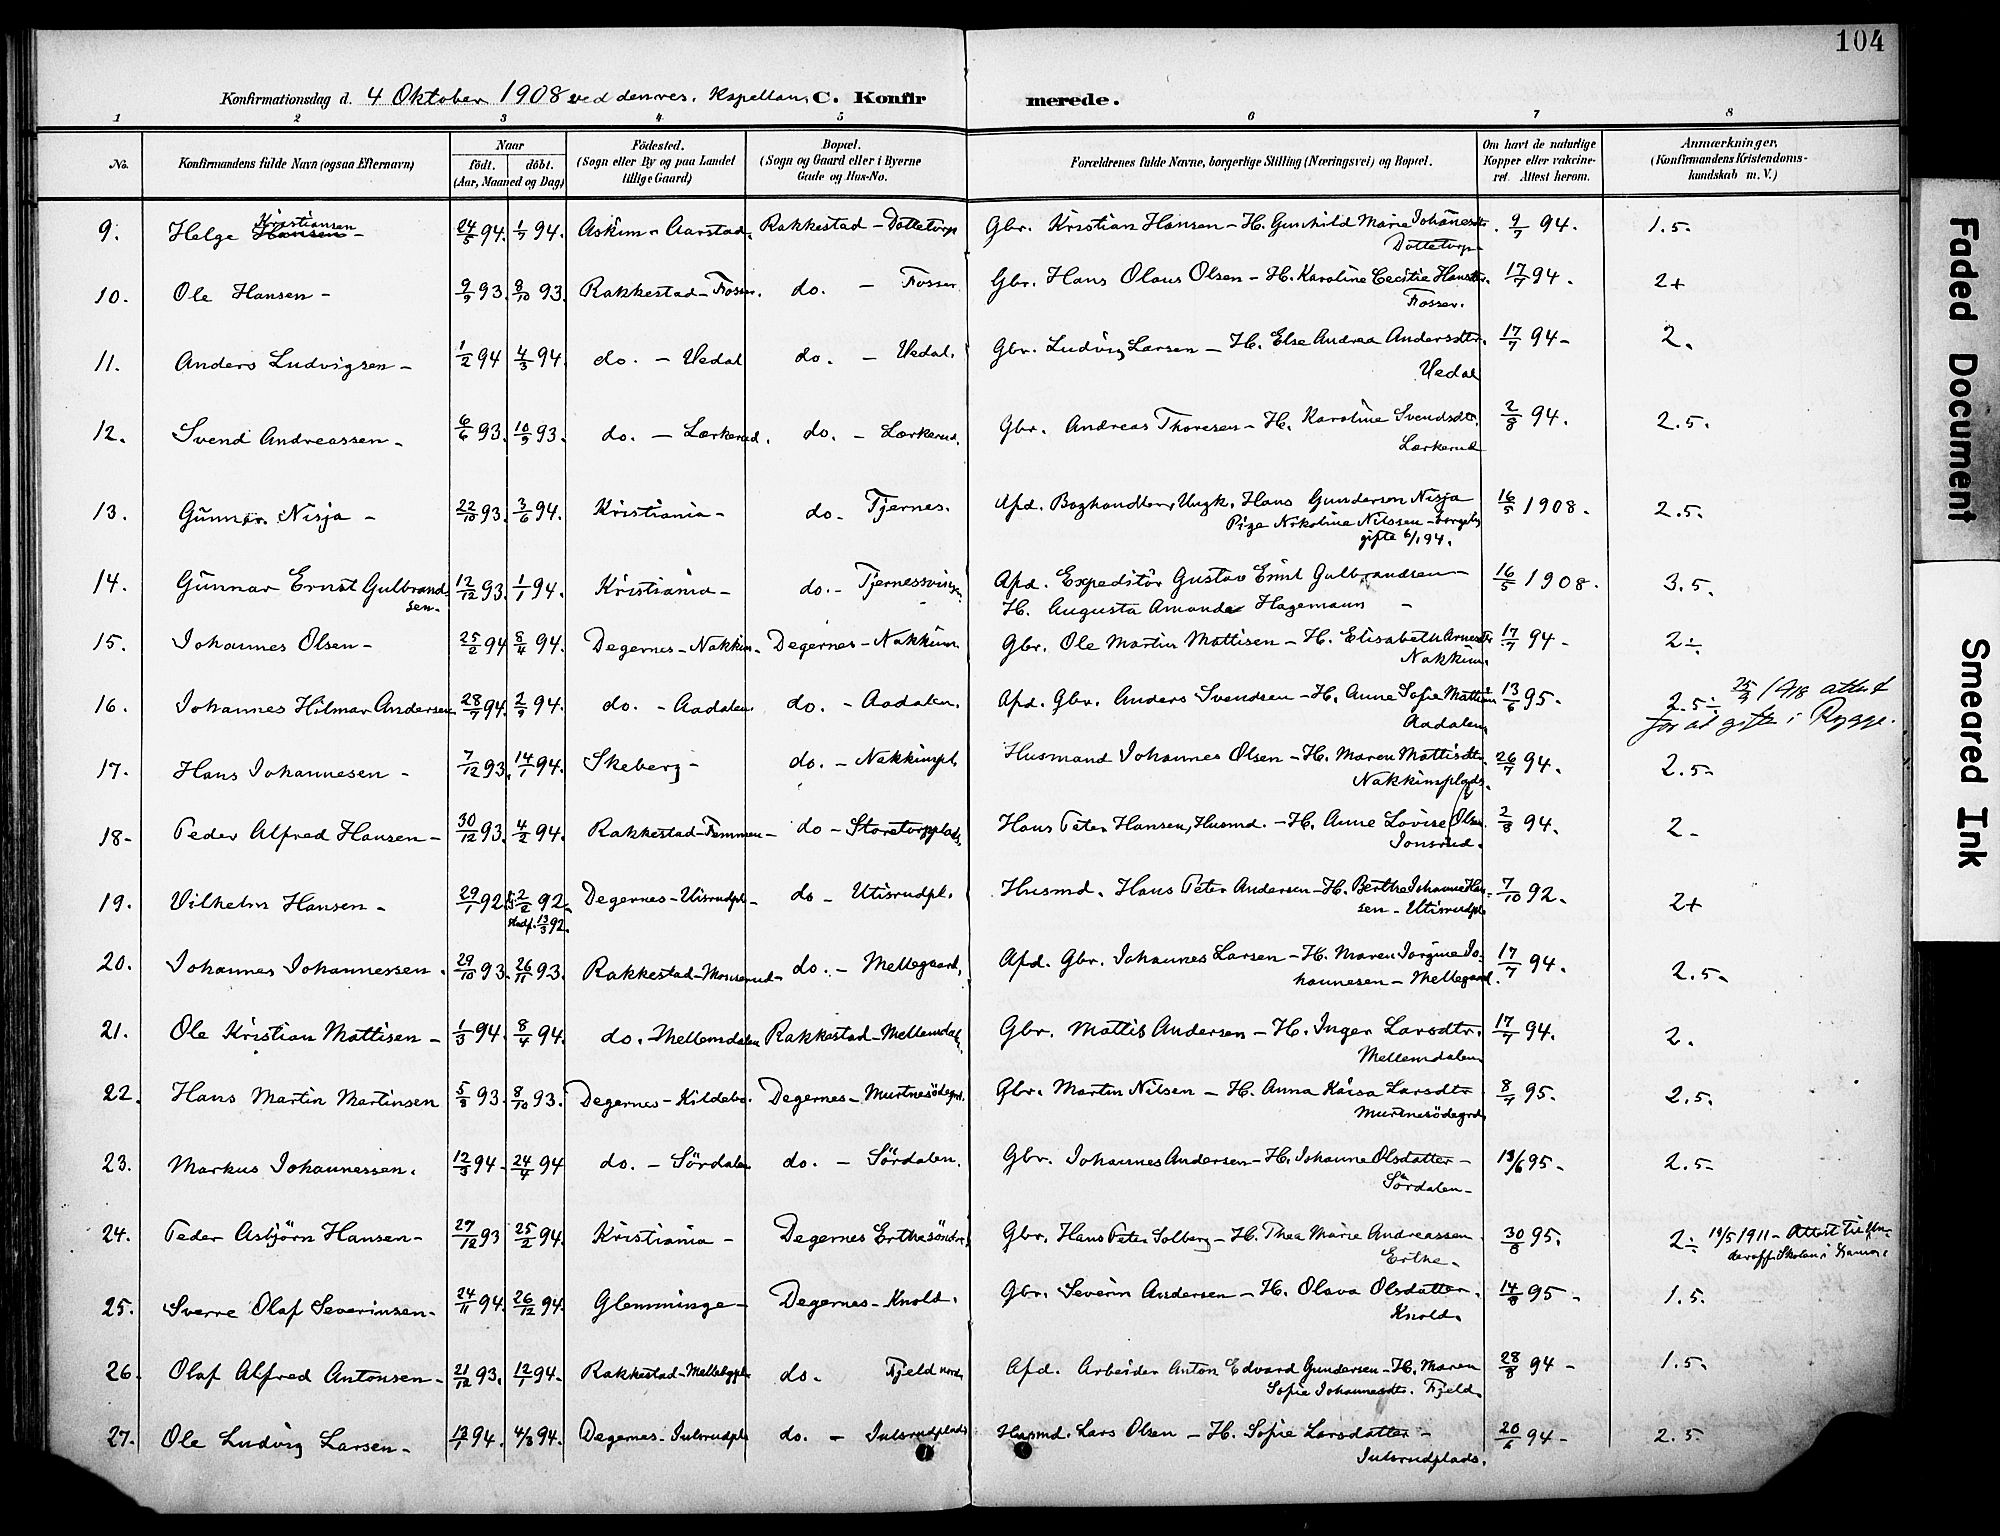 104
Konfirmationsdag d. 4 Oktober 1908 ved den res. Kapellan C. Konfirmerede.
1 2 3 4 5 6 7 8
No. Konfirmandens fulde Navn (ogsaa Efternavn) Naar födt. döbt. (Aar, Maaned og Dag) Födested. (Sogn eller By og paa Landet tillige Gaard) Bopæl. (Sogn og Gaard eller i Byerne Gade og Hus-No. Forældrenes fulde Navne, borgerlige Stilling (Næringsvei) og Bopæl. Om havt de naturlige Kopper eller vakcineret. Attest herom. Anmærkninger, (Konfirmandens Kristendomskundskab m. V.)
9. Helge Hansen Kristiansen - 24/5 94. 1/7 94. Askim - Aarstad. Rakkestad - Dattetorp Gbr. Kristian Hansen - H. Gunhild Marie Johannesdtr. Dattetorp 9/7 94. 1.5-
10. Ole Hansen - 9/9 93. 8/10 93. Rakkestad - Fosser. do. - Fosser. Gbr. Hans Olaus Olsen - H. Karoline Cecilie Hansdtr. Fosser. 17/7 94. 2+
11. Anders Ludvigsen - 1/2 94 4/3 94. do. - Vedal do. - Vedal. Gbr. Ludvig Larsen - H. Else Andrea Andersdtr. Vedal 17/7 94- 2.
12. Svend Andreassen - 6/6 93. 10/9 93. do. - Lærkerud. do. - Lærkerud. Gbr. Andreas Thoresen - H. Karoline Svendsdtr. Lærkerud 2/8 94. 2.5.
13. Gunnar Nisja - 22/10 93. 3/6 94. Kristiania - do. Tjernes. Afd. Boghandler, Ungk. Hans Gundersen Nisja Pige Nikoline Nilssen - gifte 6/1 94. 16/5 1908. 2.5.
14. Gunnar Ernst Gulbrandsen - 12/12 93. 1/1 94. Kristiania - do. - Tjernessvingen. Afd. Expeditör Gustav Emil Gulbrandsen - H. Augusta Amanda Hagemann - 16/5 1908. 3.5.
15. Johannes Olsen - 25/2 94 8/4 94. Degernes - Nakkim. Degernes - Nakkim. Gbr. Ole Martin Mattisen - H. Elisabeth Arnesdtr. Nakkim. 17/7 94- 2÷
16. Johannes Hilmar Andersen 28/7 94. 2/9 94. do. - Aadalen do. - Aadalen. Afd. Gbr. Anders Svendsen - H. Anne Sofie Mattisen Aadalen 13/6 95- 2.5÷ 25/3 1918 attest for at gifte i Rygge.
17. Hans Johannesen - 7/12 93. 14/1 94. Skeberg - do. - Nakkimpl. Husmand Johannes Olsen - H. Maren Mattisdtr. Nakkimsplads. 26/7 94. 2.5-
18- Peder Alfred Hansen - 30/12 93. 4/2 94. Rakkestad - Femmen - do - Storetorpplads. Hans Peter Hansen, Husmd. - H. Anne Lovise Olsen Jonsrud. 2/8 94. 2-
19. Vilhelm Hansen - 29/1 92 2/2 92. stadf. 13/3 92. Degernes - Utisrudpl - do - Utisrudpl. Husmd. Hans Peter Andersen - H. Berthe Johanne Hansen - Utisrudpl. 7/10 92. 2+
20. Johannes Johannessen. 29/10 93. 26/11 93. Rakkestad - Monserud - do. - Mellegaard, Afd. Gbr. Johannes Larsen - H. Maren Jörgine Johannesen - Mellegaard. 17/7 94. 2.5-
21. Ole Kristian Mattisen - 1/3 94. 8/4 94. do. - Mellemdalen Rakkestad - Mellemdal. Gbr. Mattis Andersen - H. Inger Larsdtr. Mellemdalen 17/7 94. 2.
22. Hans Martin Martinsen 5/8 93. 8/10 93. Degernes - Kildebo. Degernes - Murtnesödegrd. Gbr. Martin Nilsen - H. Anna Kaisa Larsdtr Murtnesödegrd. 8/7 95. 2.5.
23. Markus Johannessen. 12/3 94- 24/4 94 do. - Sördalen do. - Sördalen. Gbr. Johannes Andersen - H. Johanne Olsdatter - Sördalen - 13/6 95- 2.5-
24. Peder Asbjörn Hansen - 27/12 93 25/2 94. Kristiania - Degernes Erthesöndre. Gbr. Hans Peter Solberg - H. Thea Marie Andreassen Erthe - 30/8 95. 2÷ 19/5 1911 - Attest til Underoff. Skolen i Hamar.
25. Sverre Olaf Severinsen - 24/11 94. 26/12 94. Glemminge - Degernes - Knold. Gbr. Severin Andersen - H. Olava Olsdatter. Knold. 14/8 95- 1.5.
26. Olaf Alfred Antonsen - 21/12 93. 12/1 94- Rakkestad - Mellebypl. do. Fjeld nord. Afd. Arbeider Anton Edvard Gundersen - H. Maren Sofie Johannesdtr. Fjeld. 28/8 94- 1.5.
27. Ole Ludvig Larsen - 13/1 94. 4/3 94. Degernes - Julsrudpl. do. - Julsrudplads Husmd. Lars Olsen - H. Sofie Larsdatter - Julsrudplads. 20/6 94- 2.5.
Faded Document
Smeared Ink